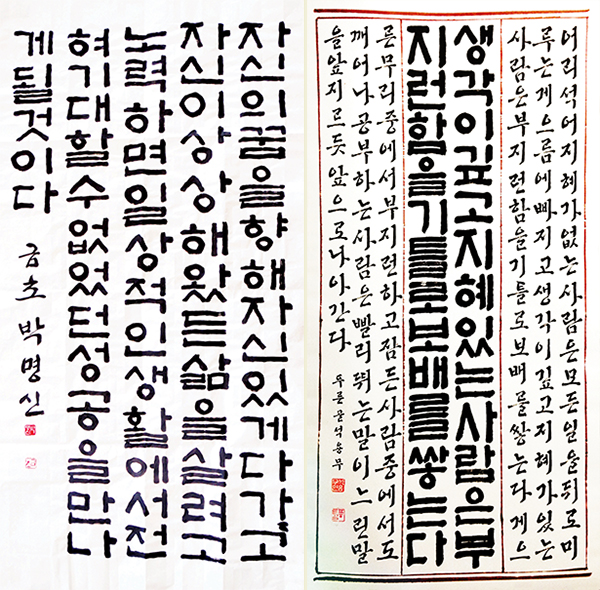 자신의꿈을향해자신있게다가고
자신이상상해왔든삶을살려고
노력하면일상적인생활에서전
혀기대할수없었던성공을만나
게될것이다
금초 박명신
어리석어지혜가없는사람은모든일을뒤로미
루는게으름에빠지고생각이깊고지혜가있는
사람은부지런함을기틀로보배를쌓는다게으
생각이깊고지혜있는사람은부
지런함을기틀로보배를쌓는다
른무리중에서부지런하고잠든사람중에서도
깨어나공부하는사람은빨리뛰는말이느린말
을앞지르듯앞으로나아간다